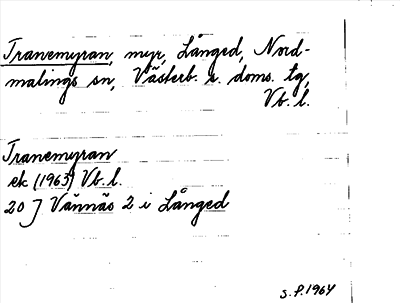 Tranemyran, myr, Långed, Nord-
malings sn, Västerb. s. doms. tg,
Vb. l.
Tranemyran
ek (1963) Vb. l.
20 J Vännäs 2 i Långed
S.P. 1964